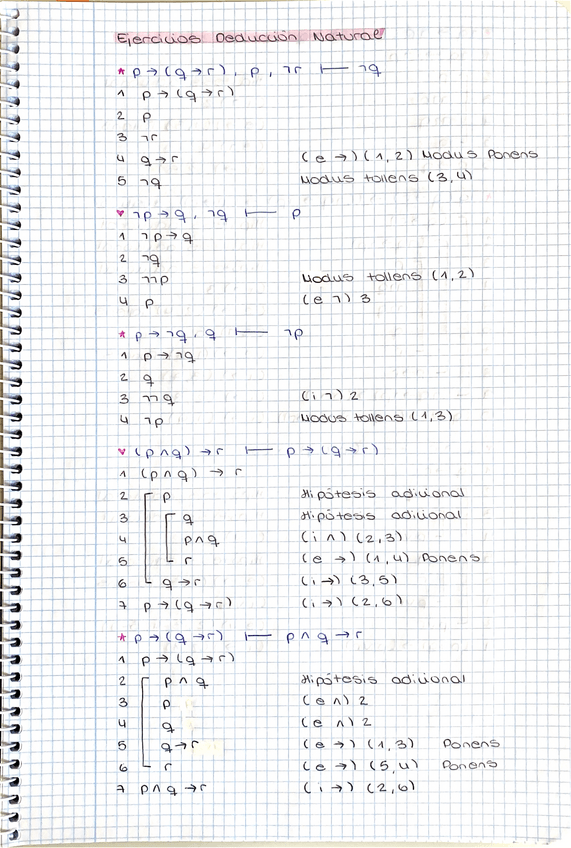 Ejercicios Deducción Natural
* p → (q → r), p, ¬r ⊢ ¬q
1 p → (q → r)
2 p
3 ¬r
4 q → r (e →) (1,2) Modus Ponens
5 ¬q Modus tollens (3,4)
♥ ¬p → q, ¬q ⊢ p
1 ¬p → q
2 ¬q
3 ¬¬p Modus tollens (1,2)
4 p (e ¬) 3
* p → ¬q, q ⊢ ¬p
1 p → ¬q
2 q
3 ¬¬q (i ¬) 2
4 ¬p Modus tollens (1,3)
♥ (p ∧ q) → r ⊢ p → (q → r)
1 (p ∧ q) → r
2 p Hipótesis adicional
3 q Hipótesis adicional
4 p ∧ q (i ∧) (2,3)
5 r (e →) (1,4) Ponens
6 q → r (i →) (3,5)
7 p → (q → r) (i →) (2,6)
* p → (q → r) ⊢ p ∧ q → r
1 p → (q → r)
2 p ∧ q Hipótesis adicional
3 p (e ∧) 2
4 q (e ∧) 2
5 q → r (e →) (1,3) Ponens
6 r (e →) (5,4) Ponens
7 p ∧ q → r (i →) (2,6)